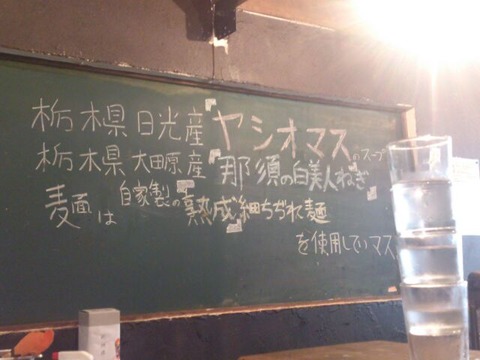 栃木県日光産ヤシオマスのスープ
栃木県大田原産那須の白美人ねぎ
麺は自家製の熟成細ちぢれ麺
を使用していマス